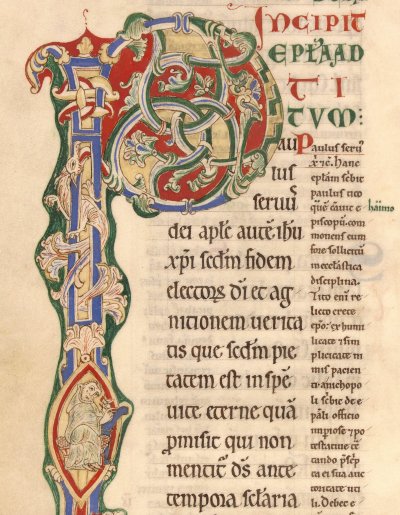 INCIPIT
EPLA AD
TI
TVM
Pau
lus
seruus
dei aplc̄ autē ihū
xp̄i scdm̄ fidem
electorū dī et ag
nitionem uerita
tis que scdm̄ pie
tatem est in spē
uite eterne quā
p̄misit qui non
mentit̄ ds̄ ante
tempora sclaria
Paulus seruꝰ
Hanc
eplām sc̄bit
paulus tito
haimo
piscopū com
monens eum
fore sollicitū
in ecclastica
disciplina.
Tito eni re
licto crete
epō: ex humi
litate & sim
plicitate ni
mis pacien
li sc̄bit de e
pali officio
& po
testatiue
ta ei sua auc
toritate uti
li. Debet e